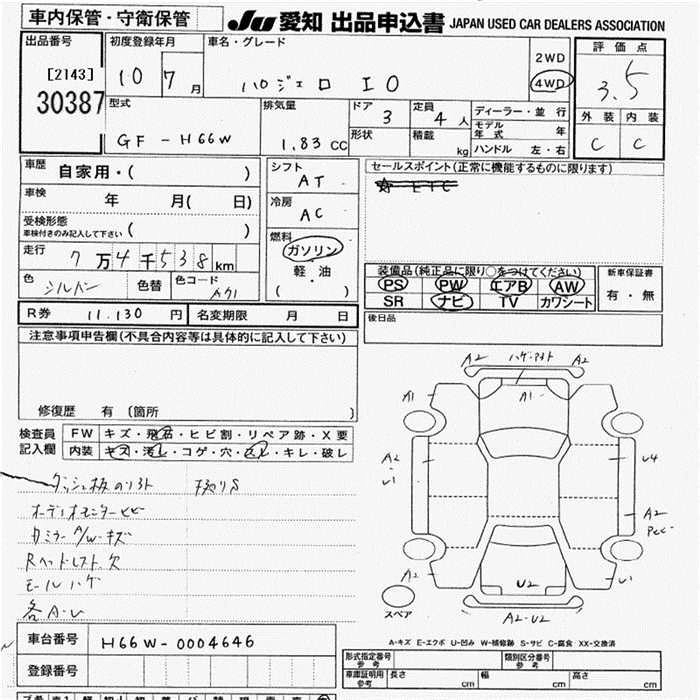 車内保管・守衛保管
JU 愛知 出品申込書 JAPAN USED CAR DEALERS ASSOCIATION
出品番号 初度登録年月 車名・グレード 2WD 評価点
[2143] 10 7月 パジェロ IO 4WD 3.5
30387
型式 排気量 ドア 定員 ディーラー・並行 外装 内装
GF-H66W 1.83 CC 3 4人 モデル年式 年 C C
形状 積載 kg ハンドル 左・右
車歴 自家用・( ) シフト セールスポイント(正常に機能するものに限ります)
AT ETC
車検 年 月( 日) 冷房
AC
受検形態
車検付きのみ記入して下さい ( ) 燃料
走行 7万4千538km ガソリン
軽・油
( ・ )
装備品(純正品に限り○をつけてください) 新車保証書
色 シルバー 色替 色コード PS PW エアB AW 有・無
SR ナビ TV カワシート
R券 11.130円 名変期限 月 日 後日品
注意事項申告欄(不具合内容等は具体的に記入して下さい)
修復歴 有 (箇所 )
検査員記入欄 FW キズ・飛石・ヒビ割・リペア跡・X要
内装 キズ・汚レ・コゲ・穴・スレ・キレ・破レ
A2 A2
A1 A1
A2
U1
U4
A2
A2 U2 U1
A2-U2
スペア
オーディオモニターヒビ
カミラー A/W-キズ
Rヘッドレスト欠
モールハゲ
各A-U
A-キズ E-エクボ U-凹み W-補修跡 S-サビ C-腐食 XX-交換済
車台番号 H66W-0004646
登録番号
形式指定番号 参考 類別区分番号 参考
車庫証明用 参考 長さ cm 幅 cm 高さ cm